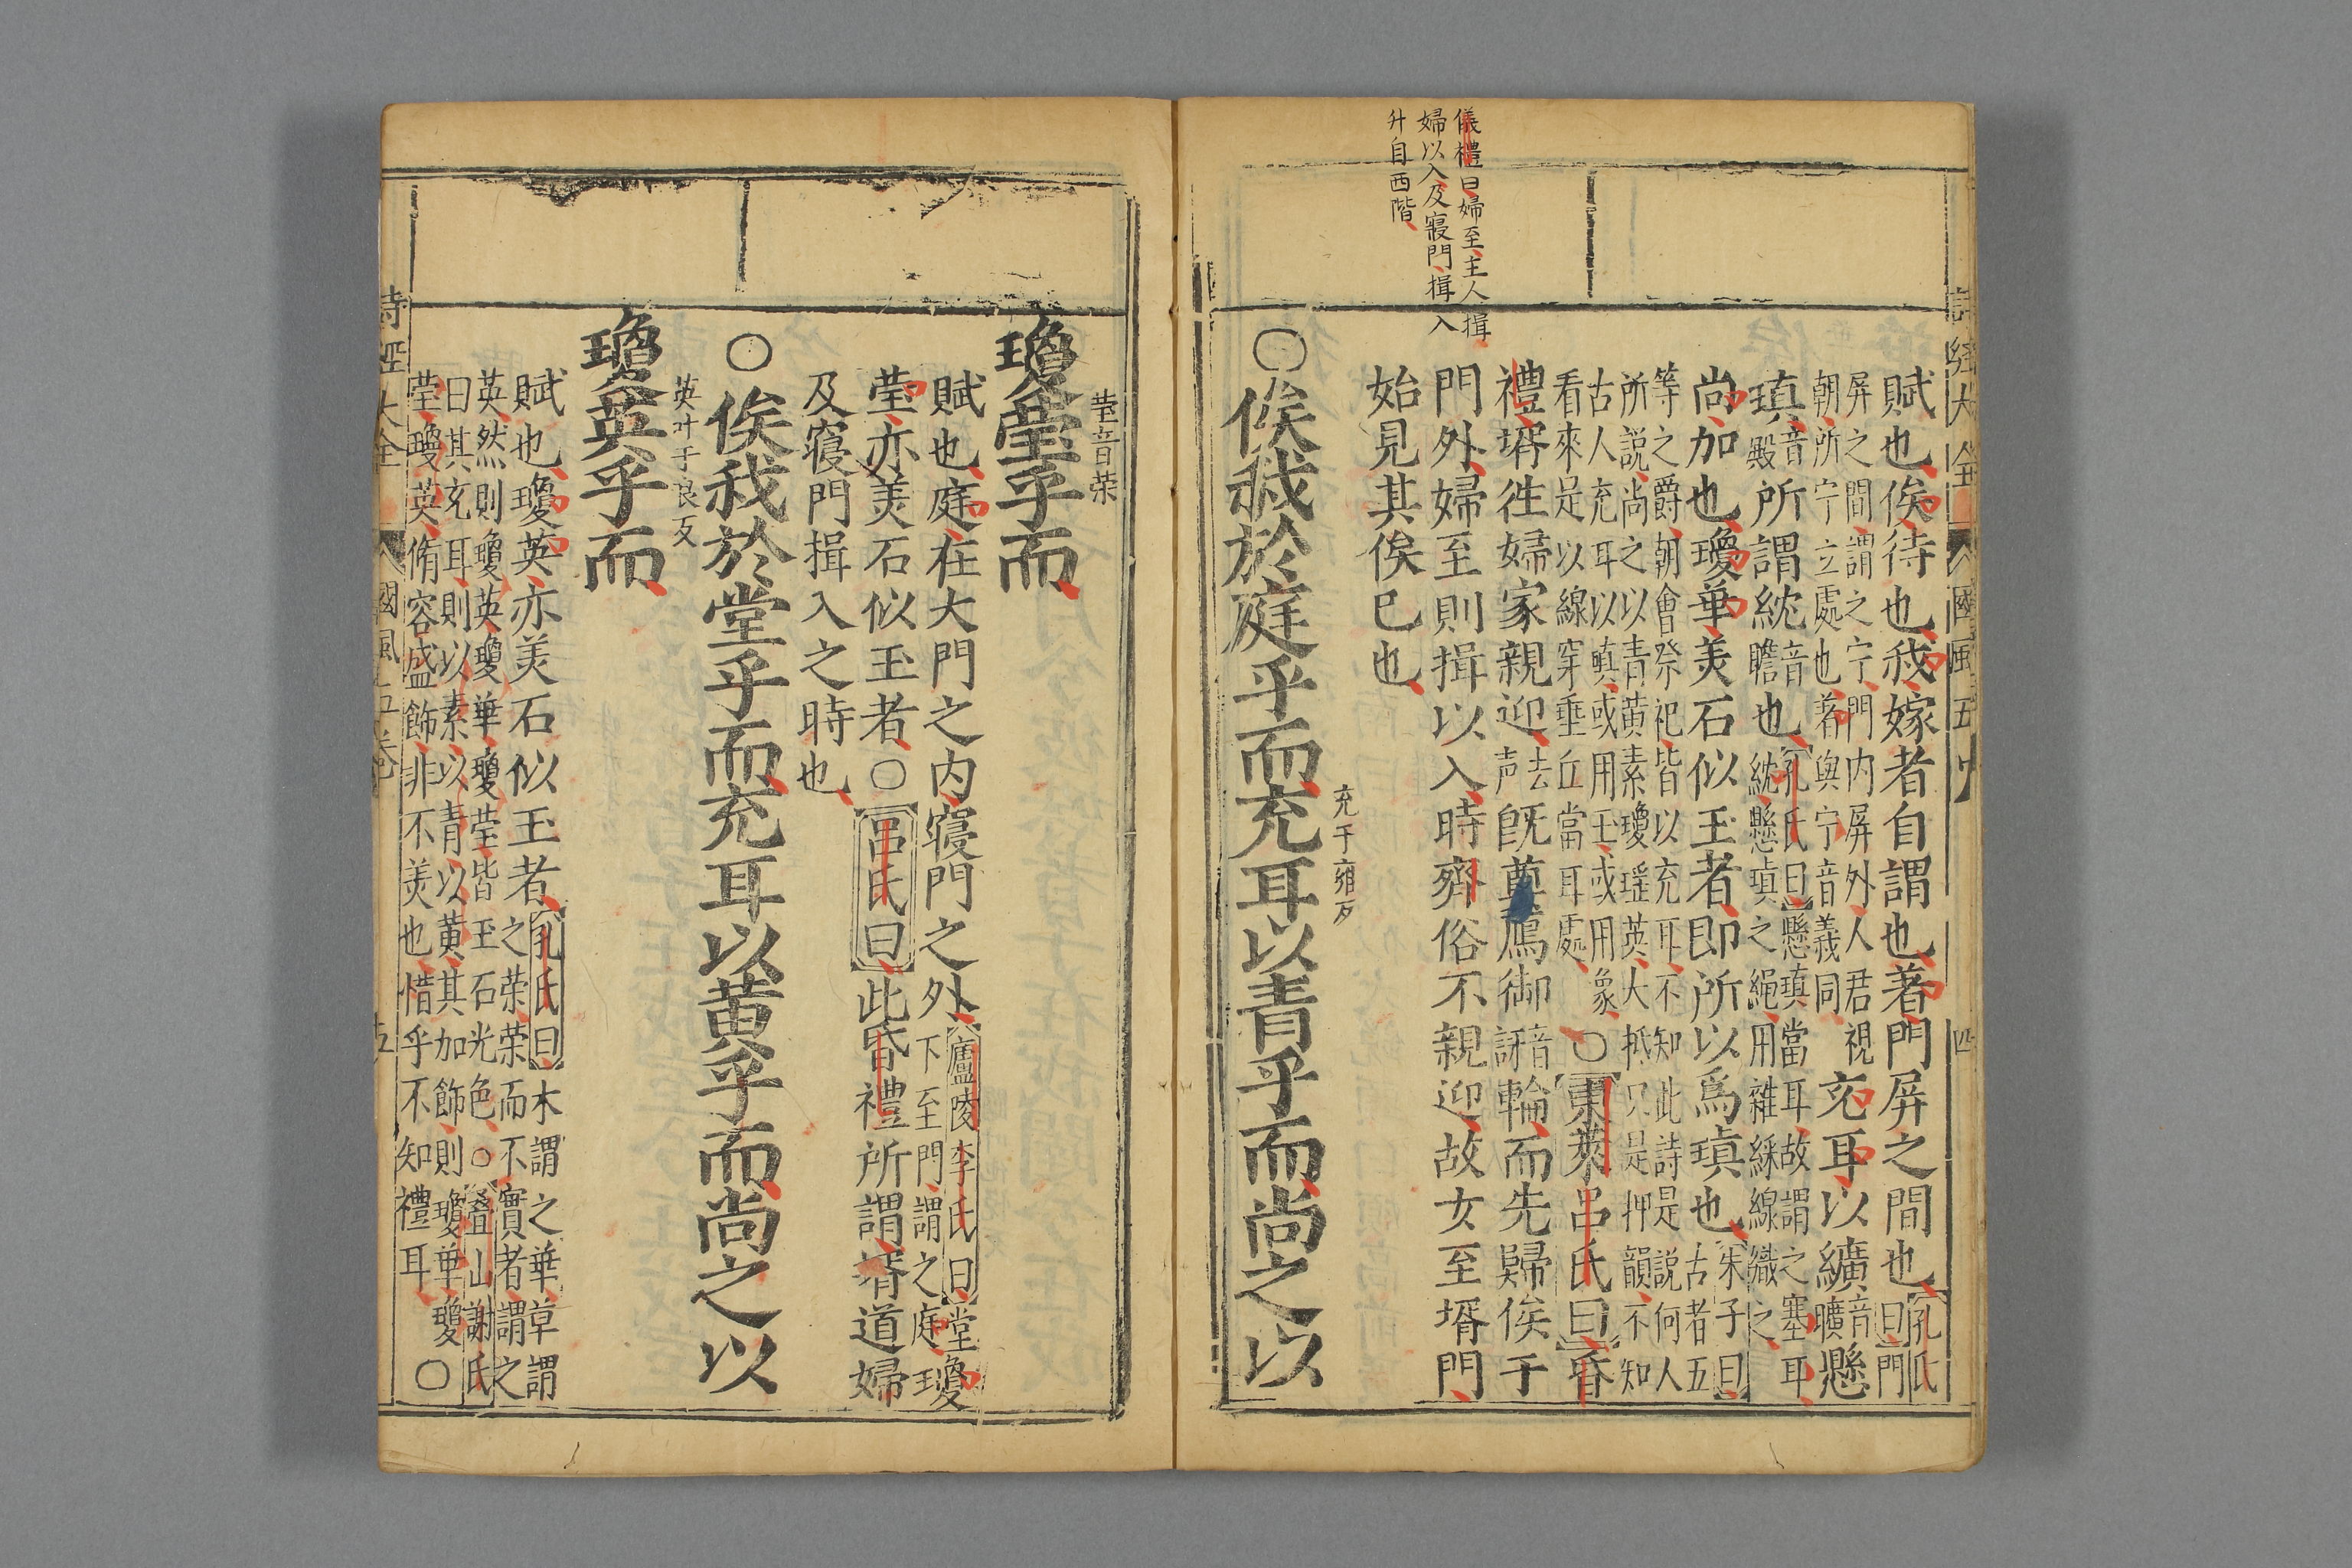 詩經大全 國風五 四
賦也俟待也我嫁者自謂也著門屏之間也孔氏曰門
屏之間謂之宁門内屏外人君視
朝所宁立處也著與宁音義同充耳以纊音曠懸
瑱音殿所謂紞音瞻也孔氏曰懸瑱當耳故謂之塞耳
紞懸瑱之繩用雜綵線織之
尚加也瓊華美石似玉者即所以爲瑱也朱子曰古者五
等之爵朝會祭祀皆以充耳不知此詩是説何人
所説尚之以青黄素瓊瑤英大抵只是押韻不知
古人充耳以瑱或用玉或用象
看來是以線穿垂丘當耳處○東萊吕氏曰昏
禮壻徃婦家親迎去声旣奠鴈御音訝輪而先歸俟于
門外婦至則揖以入時齊俗不親迎故女至壻門
始見其俟己也
儀禮曰婦至主人揖
婦以入及寢門揖入
升自西階
充于雍反
○俟我於庭乎而充耳以青乎而尚之以
瑩音荣
瓊瑩乎而
賦也庭在大門之内寢門之外廬陵李氏曰堂
下至門謂之庭瓊
瑩亦美石似玉者○吕氏曰此昏禮所謂壻道婦
及寢門揖入之時也
○俟我於堂乎而充耳以黄乎而尚之以
英叶于良反
瓊英乎而
賦也瓊英亦美石似玉者孔氏曰木謂之華草謂
之荣荣而不實者謂之
英然則瓊英瓊華瓊瑩皆玉石光色○叠山謝氏
曰其充耳則以素以青以黄其加飾則瓊華瓊
瑩瓊英脩容盛飾非不美也惜乎不知禮耳○
詩經大全 國風五卷 五